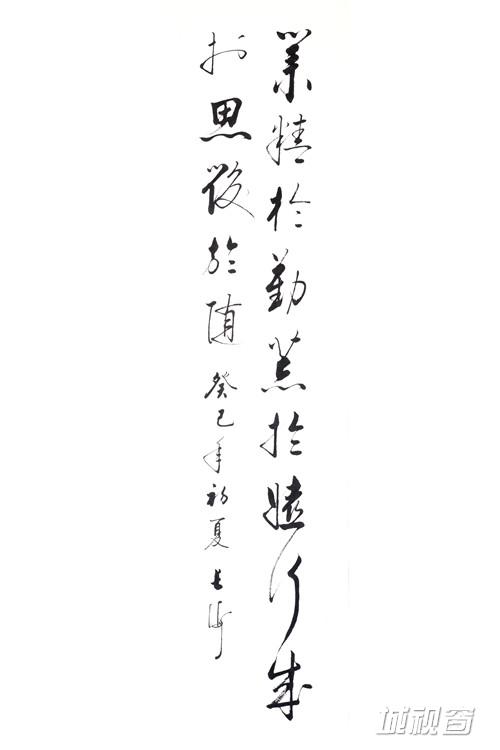 業精於勤荒於嬉行成
於思毀於随 癸巳年初夏
城视窗